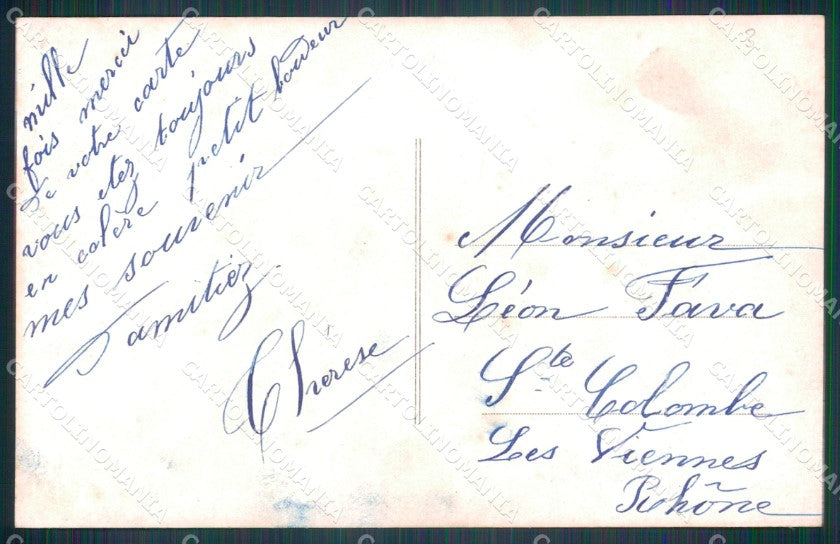 mille
fois merci
de votre carte
vous etez toujours
en colère petit boudeur
mes souvenir
d'amitiez
Therese
Monsieur
Léon Fava
Ste Colombe
Les Viennes
Rhône
CARTOLINOMANIA